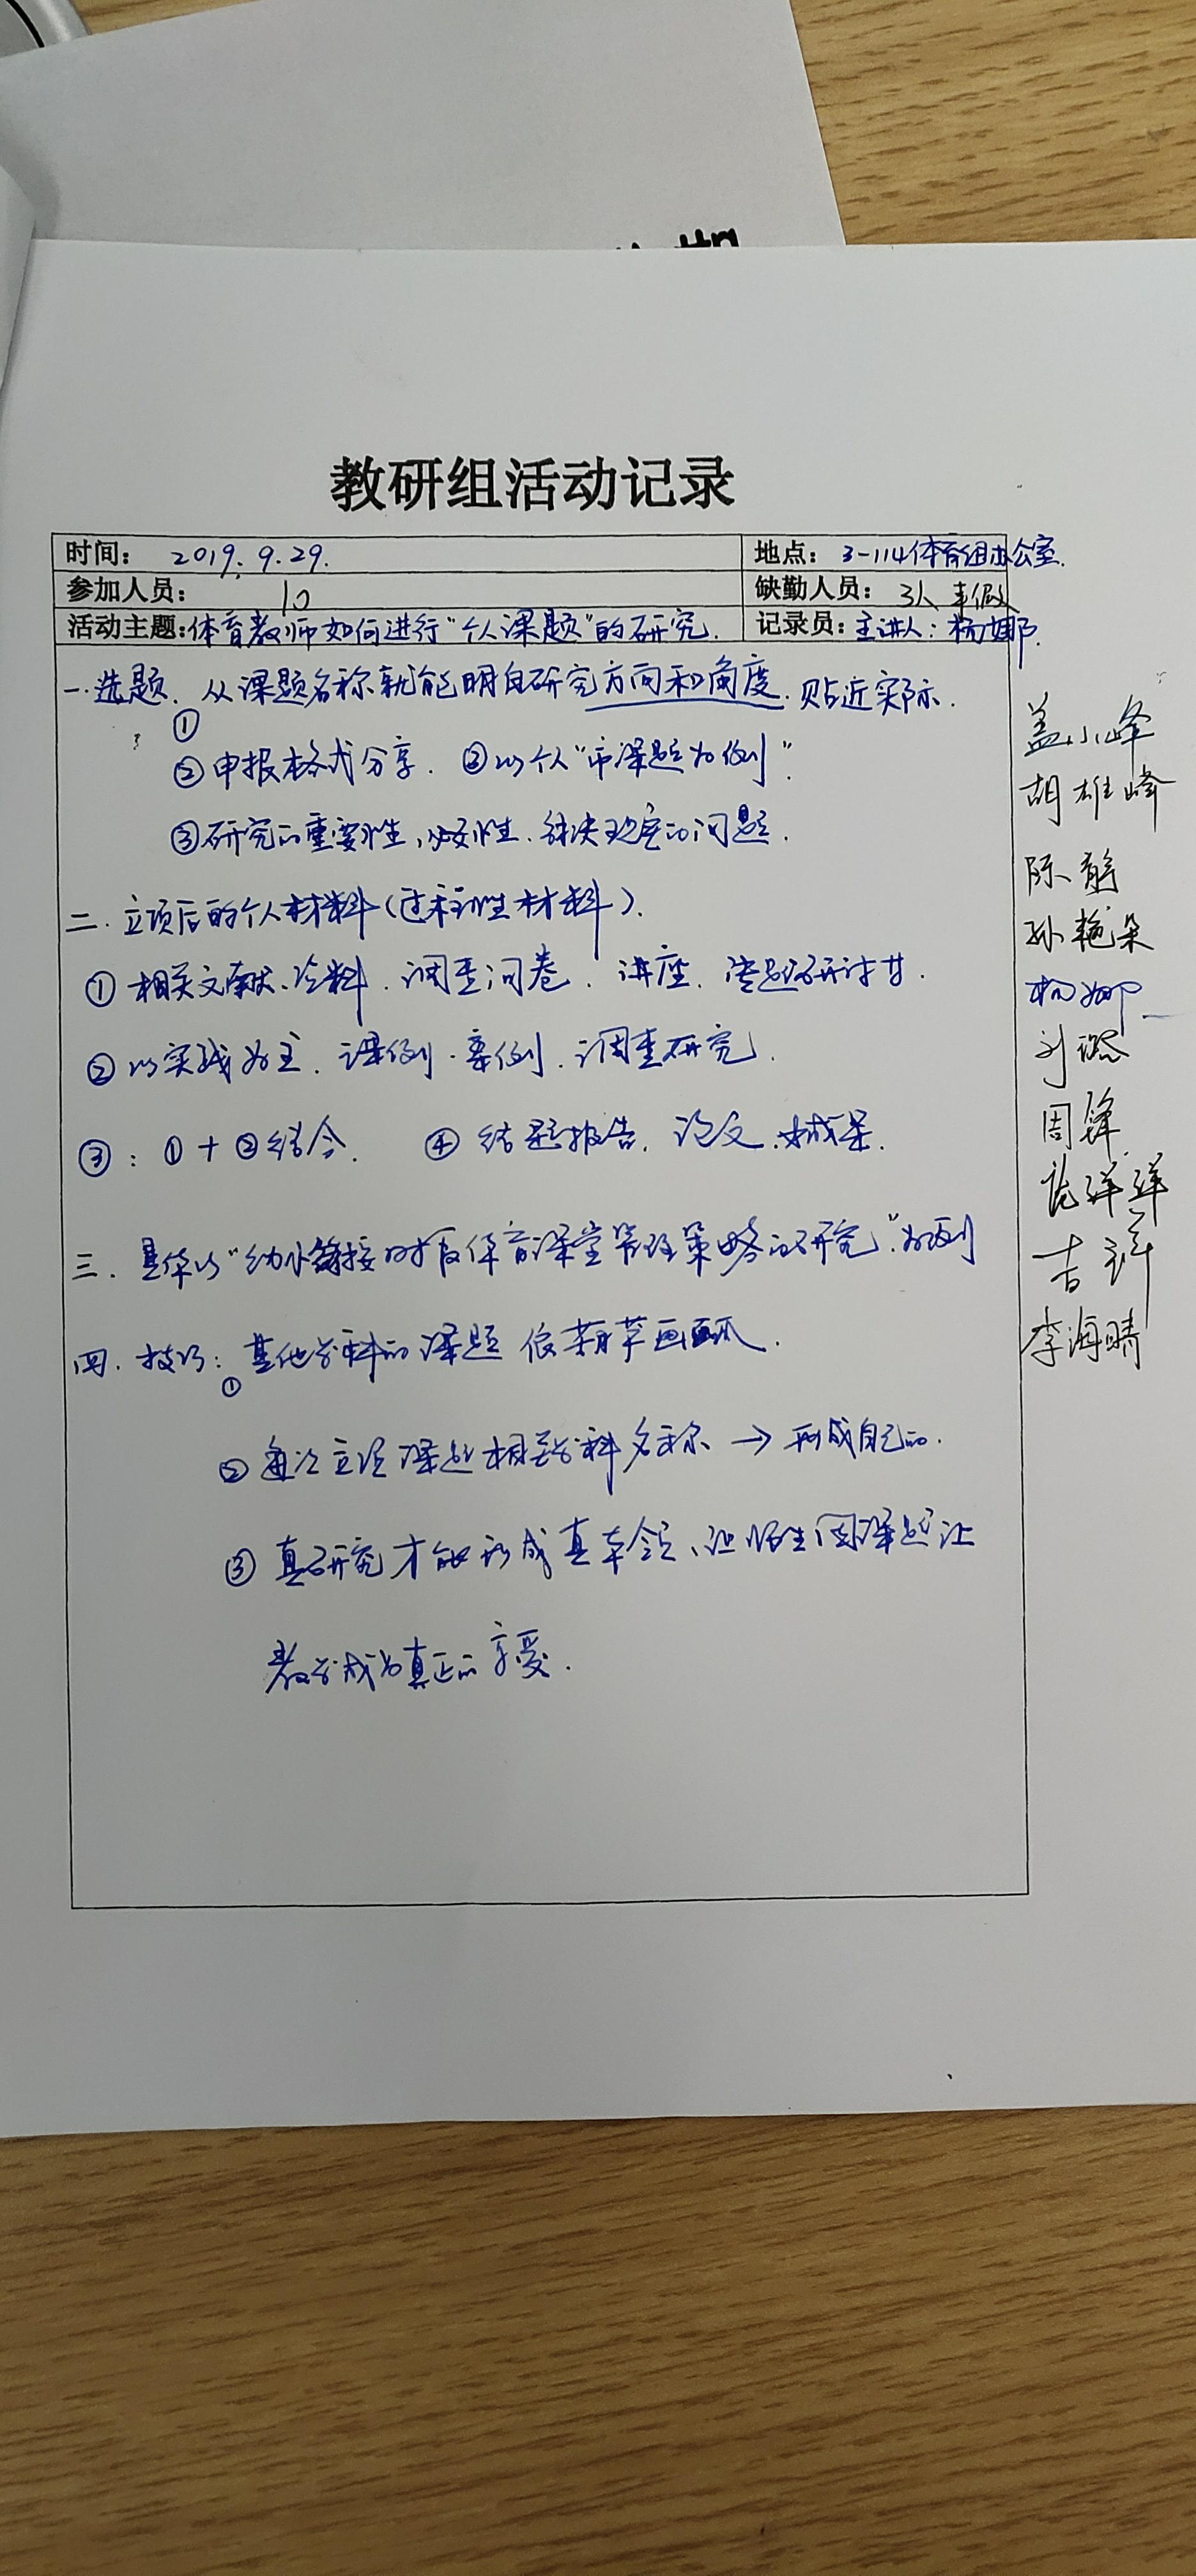 教研组活动记录
时间： 2019.9.29. 地点：3-114体育组办公室.
参加人员： 10 缺勤人员： 3人 事假
活动主题：体育教师如何进行"个人课题"的研究. 记录员：主讲人：杨娜.
一.选题、从课题名称就能明白研究方向和角度.贴近实际.
①
②申报格式分享. ②以个人"市课题为例".
③研究的重要性,必要性.解决现实的问题.
二.立项后的个人材料(过程性材料).
①相关文献、资料.调查问卷.讲座.课题研讨
②以实践为主.课例.案例.调查研究.
③：①+②结合. ④结题报告.论文.成果.
三.具体以"幼小衔接时段体育课堂管理策略的研究".为例
四.技巧：其他学科的课题 依葫芦画瓢.
①
②每次立项课题相关学科名称→形成自己的.
③真研究才能形成真本领、让师生因课题让
教学成为真正的享受.
盖小峰
胡雄峰
陈
孙艳朵
杨娜
刘
周锋
洋洋
吉祥
李海晴